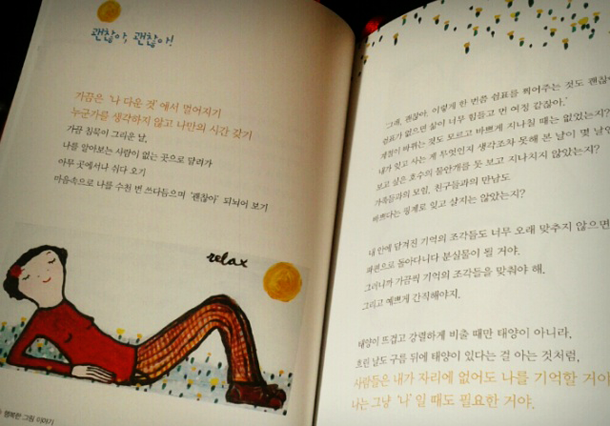 괜찮아, 괜찮아!
가끔은 '나 다운 것' 에서 멀어지기
누군가를 생각하지 않고 나만의 시간 갖기
가끔 침묵이 그리운 날,
나를 알아보는 사람이 없는 곳으로 달려가
아무 곳에서나 쉬다 오기
마음속으로 나를 수천 번 쓰다듬으며 '괜찮아' 되뇌어 보기
relax
행복한 그림 이야기
'그래, 괜찮아, 이렇게 한 번쯤 쉼표를 찍어주는 것도 괜찮
쉼표가 없으면 삶이 너무 힘들고 먼 여정 같잖아.'
계절이 바뀌는 것도 모르고 바쁘게 지나칠 때는 없었는지?
내가 갖고 사는 게 무엇인지 생각조차 못해 본 날이 몇 날인
보고 싶은 호수의 물안개를 못 보고 지나치지 않았는지?
가족들과의 모험, 친구들과의 만남도
바쁘다는 핑계로 잊고 살지는 않았는지?
내 안에 담겨진 기억의 조각들도 너무 오래 맞추지 않으면
파편으로 돌아다니다 분실물이 될 거야.
그러니까 가끔씩 기억의 조각들을 맞춰야 해,
그리고 예쁘게 간직해야지.
태양이 뜨겁고 강렬하게 비출 때만 태양이 아니라,
흐린 날도 구름 뒤에 태양이 있다는 걸 아는 것처럼,
사람들은 내가 자리에 없어도 나를 기억할 거야
나는 그냥 '나' 일 때도 필요한 거야.